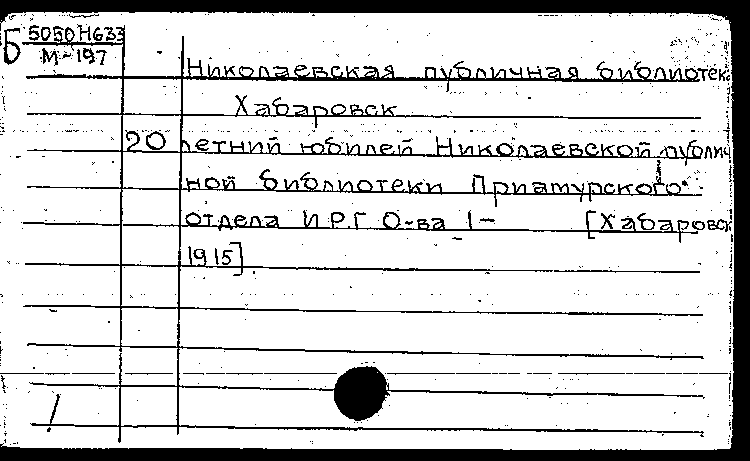 Б 5050 Н633
М-197
Николаевская публичная библиотек
Хабаровск
20 летний юбилей Николаевской публич
ной библиотеки Приамурского
отдела И Р.Г О-ва 1- [Хабаровск
1915]